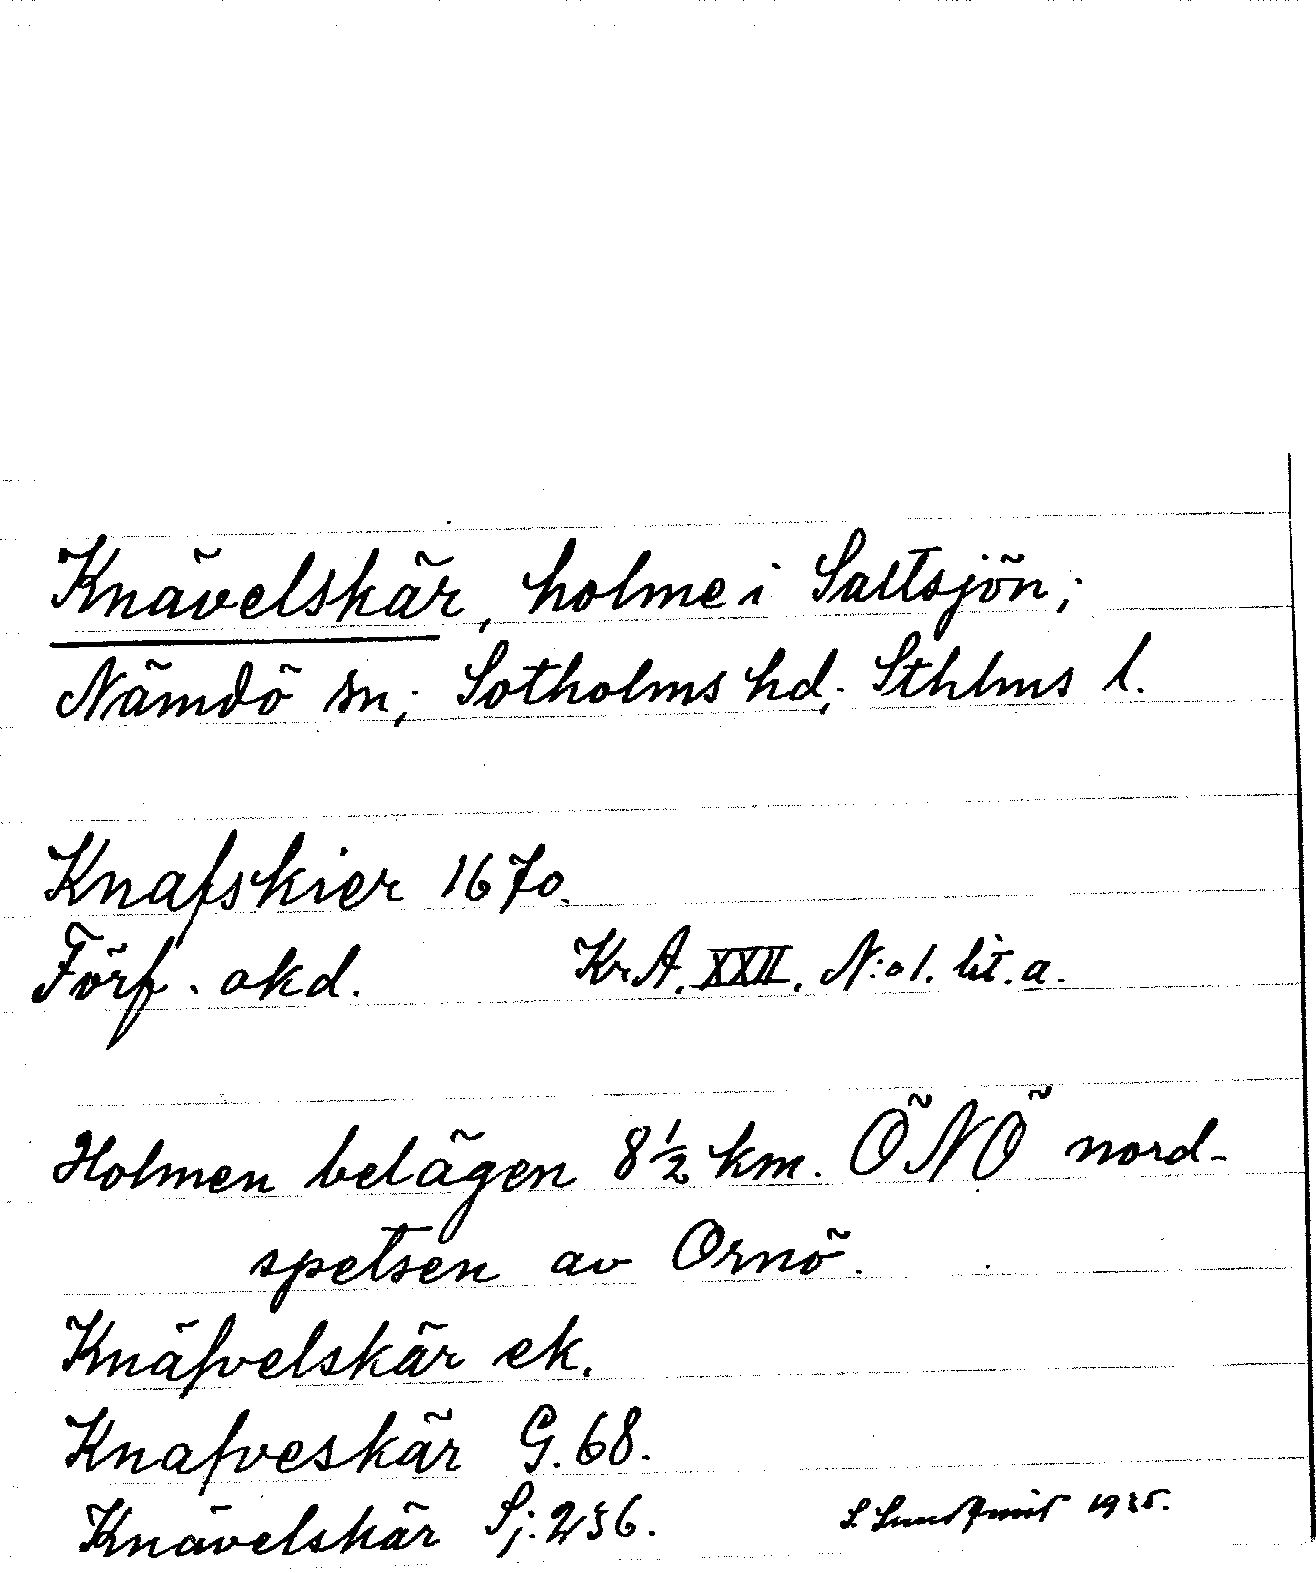 Knävelskär, holme i Saltsjön;
Nämdö sn; Sotholms hd; Sthlms l.
Knafskier 1670.
Förf. okd. Kr.A. XXII. N:o 1. lit. a.
Holmen belägen 8½ km. ÖNÖ nord-
spetsen av Ornö.
Knäfvelskär ek.
Knafveskär G. 68.
Knävelskär Sj. 236. S. Lundqvist 1925.